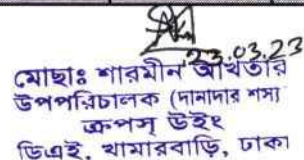 23.03.23
মোছাঃ শারমীন আখতার
উপপরিচালক (দানাদার শস্য
ক্রপস্ উইং
ডিএই, খামারবাড়ি, ঢাকা